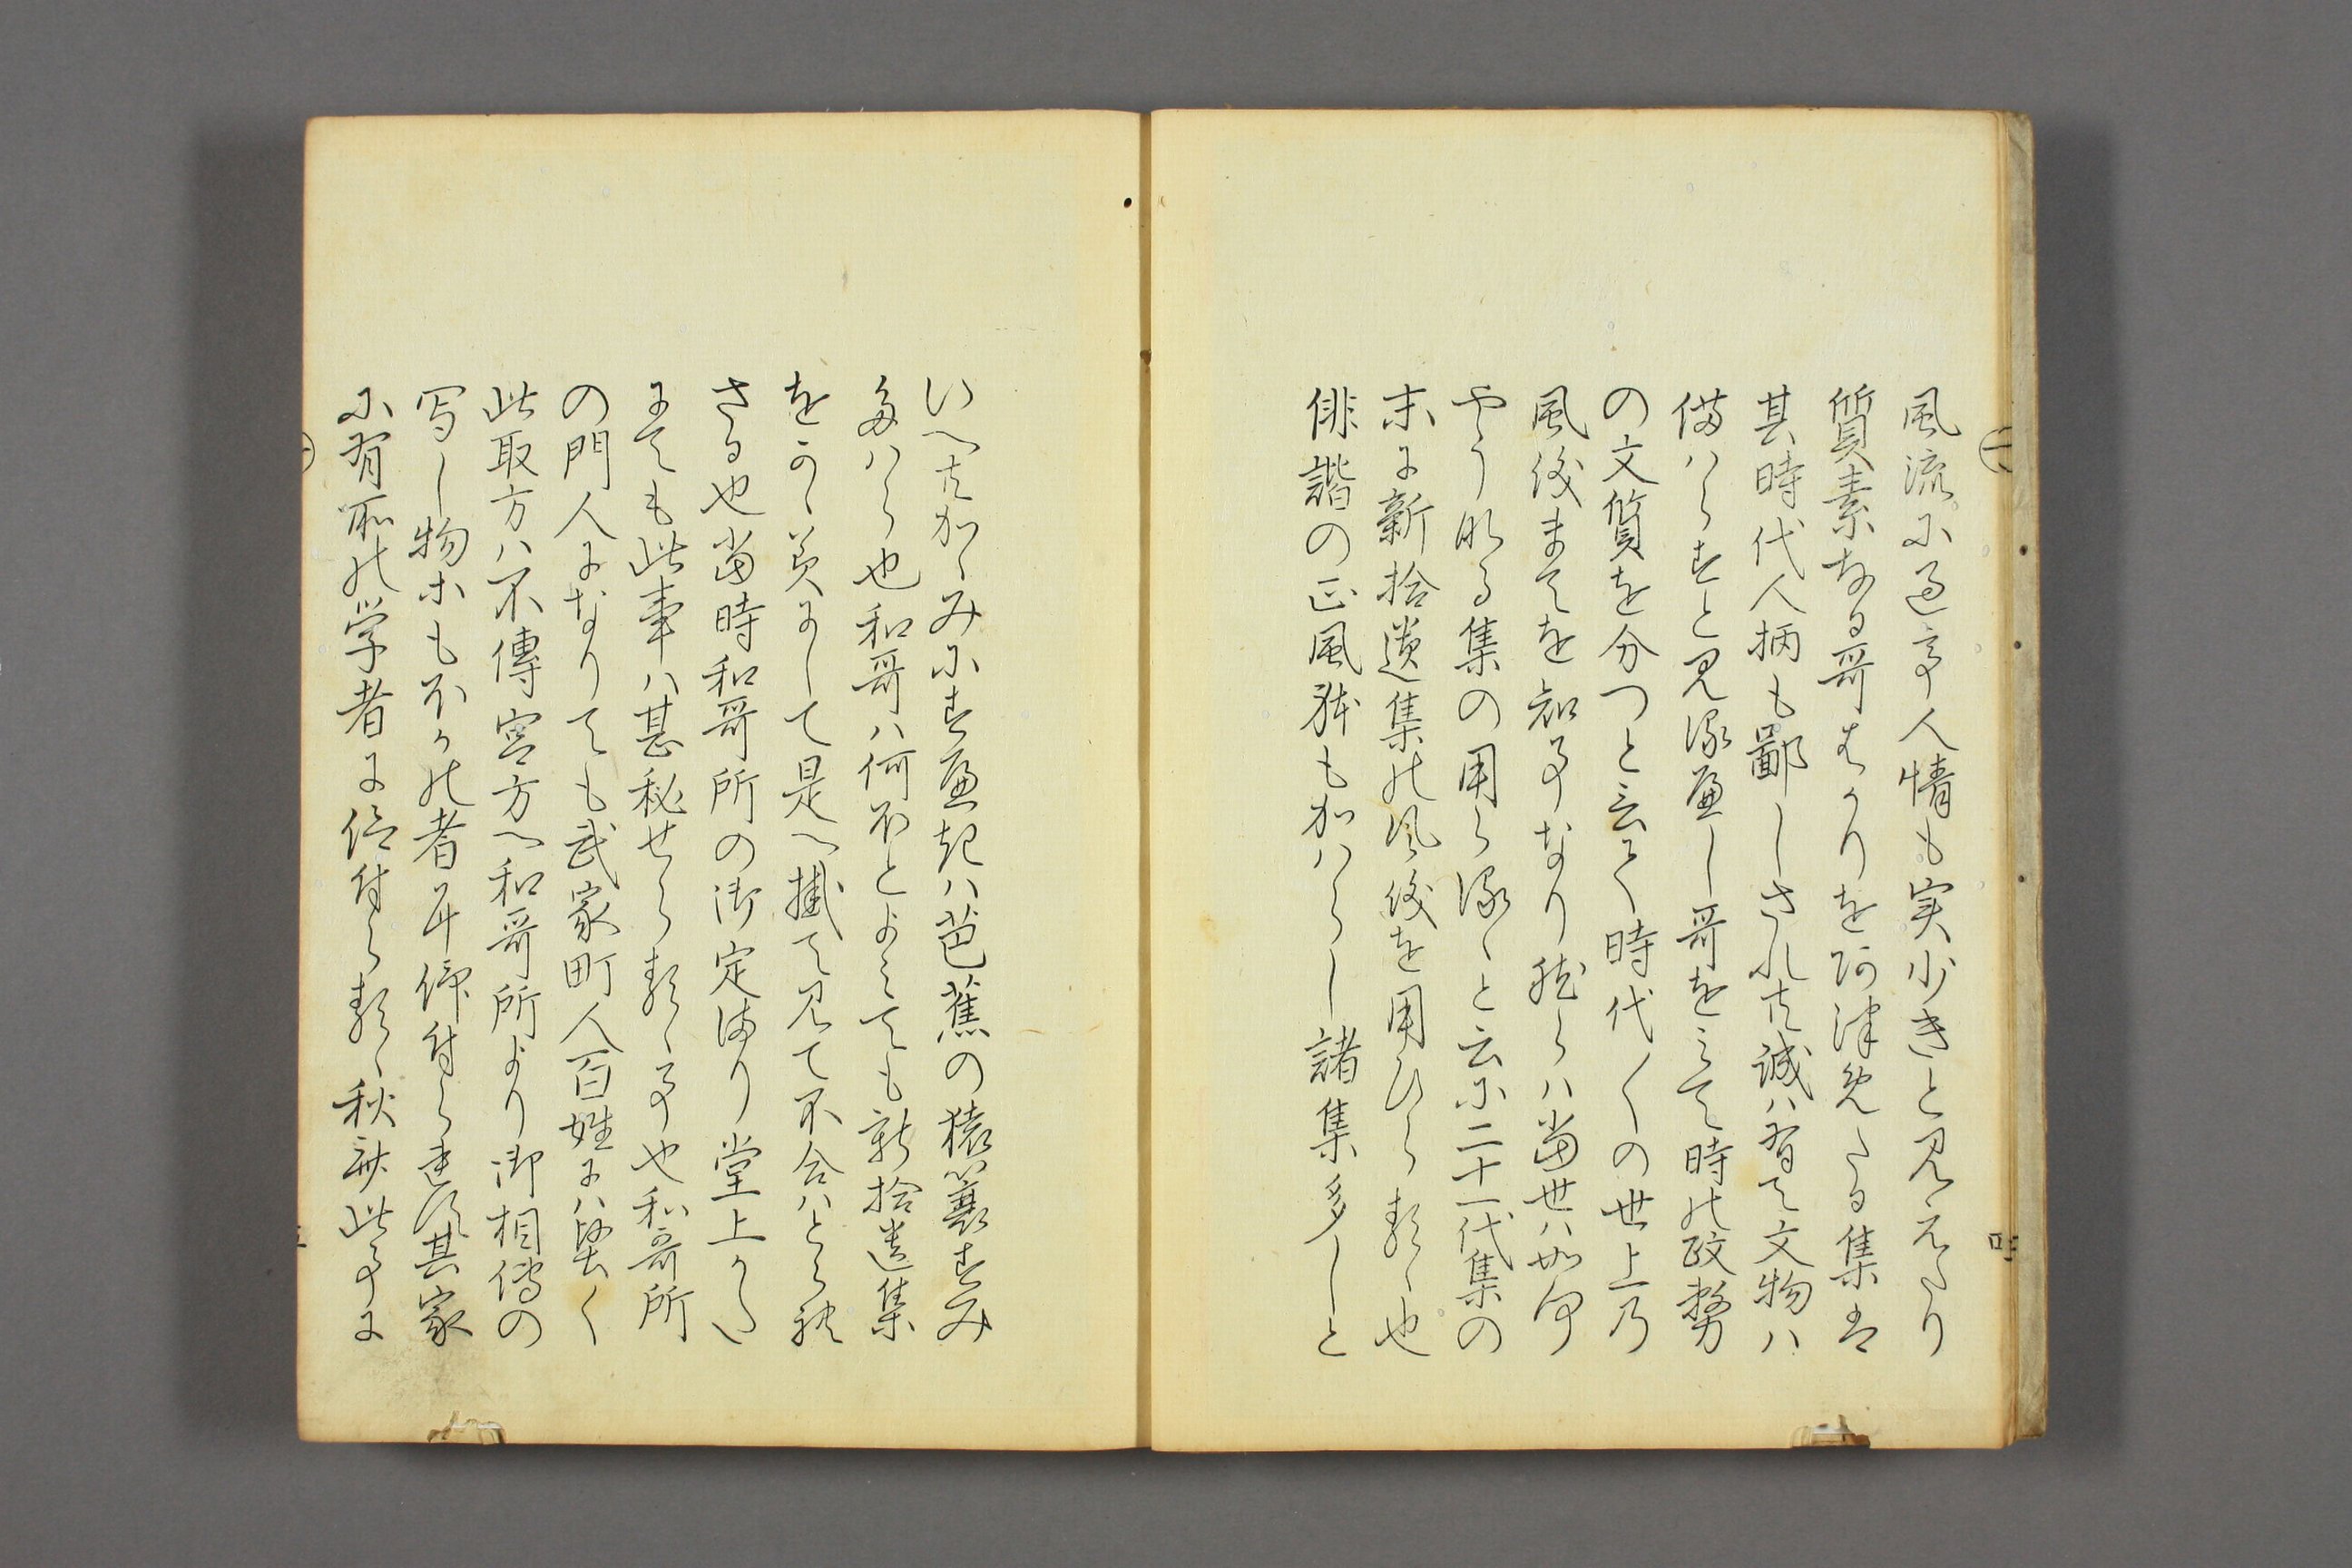 風流に過て人情も実少きと見えたり
質素なる哥はかりを阿津免たる集は
其時代人柄も鄙しされ共誠は有て文物ハ
備ハらすと見ゆ兼し哥をミて時の政務
の文質を分つと云て時代〱の世上乃
風俗まてを知事なり然らハ当世ハ如何
やうなる集の用らるゝと云に二十一代集の
末に新拾遺集の風俗を用ひらるゝ也
俳諧の正風躰も加ハらし諸集多しと
いへ共かゝみにす兼起ハ芭蕉の猿蓑すみ
多ハら也和哥ハ何ほとよミても新拾遺集
をかゝ美にして是へ掛て見て不合ハとら
さる也当時和哥所の御定法り堂上かた
にても此事ハ甚秘せらるゝ事也和哥所
の門人になりても武家町人百姓にハ堅く
此取方ハ不傳宮方へ和哥所より御相傳の
写し物ホもほかの者ニ仰付られ須其家
に有所の学者に位付らるゝ秋訳此事に